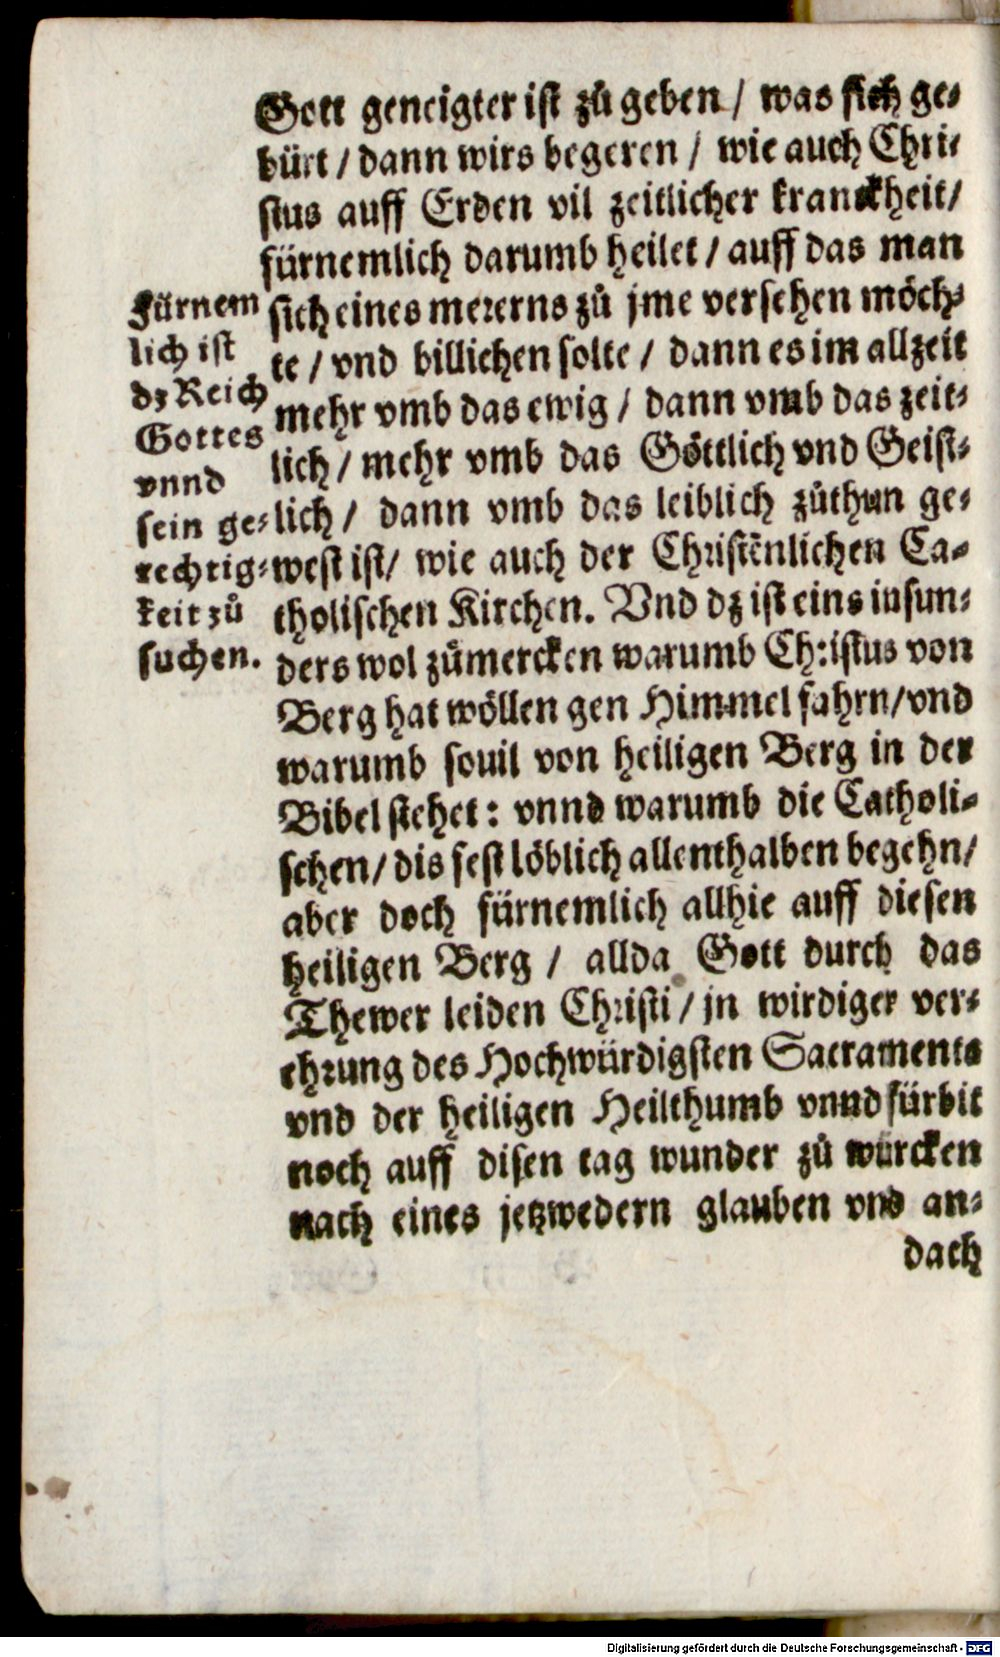 Gott geneigter ist zů geben / was sich ge⸗
bürt / dann wirs begeren / wie auch Chri⸗
stus auff Erden vil zeitlicher kranckheit /
fürnemlich darumb heilet / auff das man
sich eines mererns zů jme versehen möch⸗
te / vnd billichen solte / dann es im allzeit
mehr vmb das ewig / dann vmb das zeit⸗
lich / mehr vmb das Göttlich vnd Geist⸗
lich / dann vmb das leiblich zůthun ge⸗
west ist / wie auch der Christẽnlichen Ca⸗
tholischen Kirchen. Vnd dz ist eins insun⸗
ders wol zůmercken warumb Christus von
Berg hat wöllen gen Himmel fahrn / vnd
warumb souil von heiligen Berg in der
Bibel stehet: vnnd warumb die Catholi⸗
schen / dis fest löblich allenthalben begehn /
aber doch fürnemlich allhie auff diesen
heiligen Berg / allda Gott durch das
Thewer leiden Christi / jn wirdiger ver⸗
ehrung des Hochwürdigsten Sacraments
vnd der heiligen Heilthumb vnnd fürbit
noch auff disen tag wunder zů würcken
nach eines jetzwedern glauben vnd an⸗
dach
Fürnem
lich ist
dz Reich
Gottes
vnnd
sein ge⸗
rechtig⸗
keit zů
suchen.
Digitalisierung gefördert durch die Deutsche Forschungsgemeinschaft - DFG